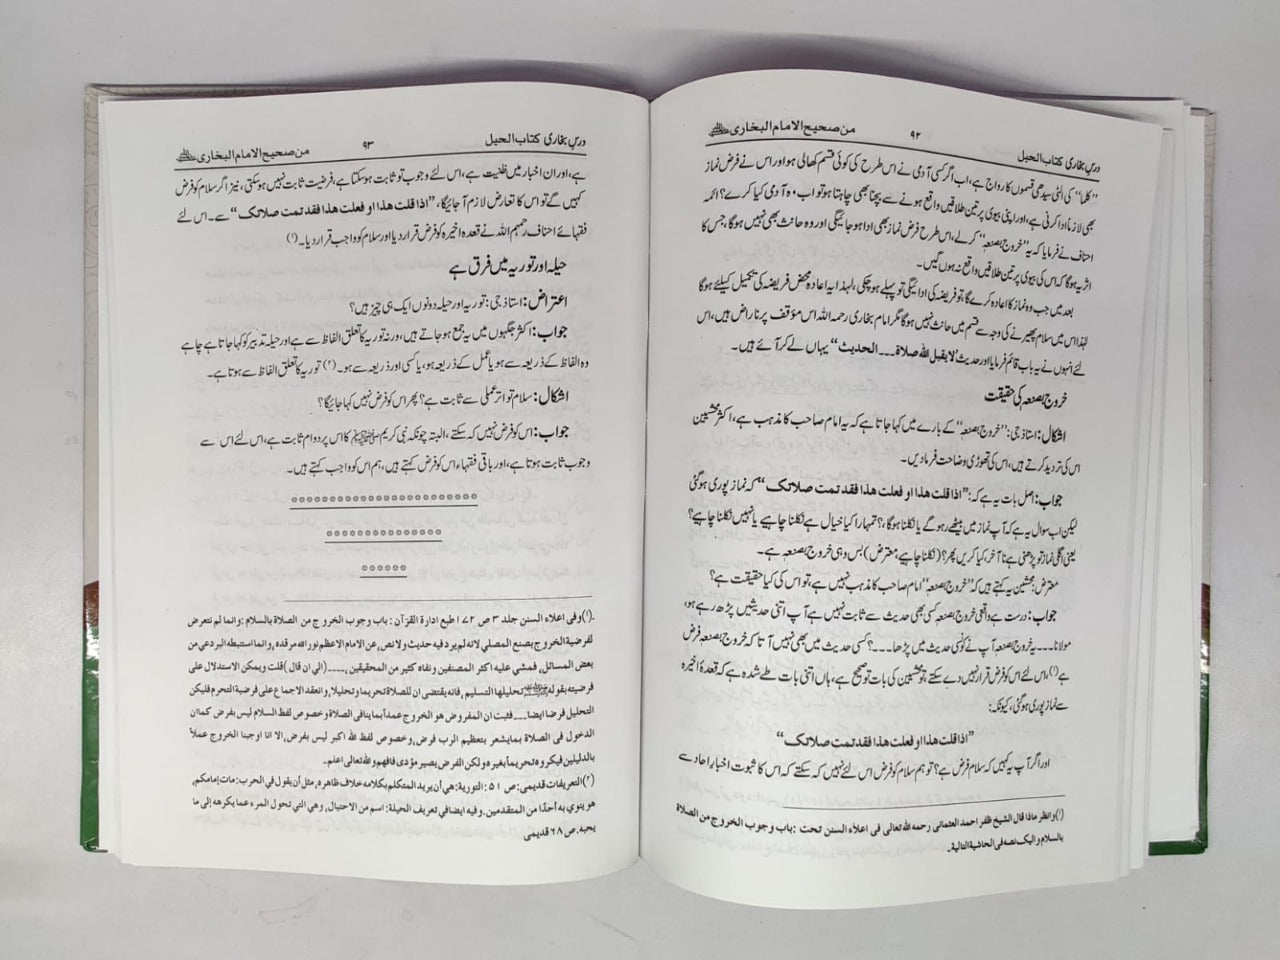 درسِ بخاری کتاب الحیل ۹۲ من صحیح الامام البخاری ﷫
”کلما“ کی الٹی سیدھی قسموں کا رواج ہے، اب اگر کسی آدمی نے اس طرح کی کوئی قسم کھالی ہو اور اس نے فرض نماز
بھی لازماً ادا کرنی ہے، اور اپنی بیوی پر تین طلاقیں واقع ہونے سے بچنا بھی چاہتا ہو تو اب وہ آدمی کیا کرے؟ ائمہ
احناف نے فرمایا کہ یہ ”خروج بصنعہ“ کرلے، اس طرح فرض نماز بھی ادا ہو جائیگی اور وہ حانث بھی نہیں ہوگا، جس کا
اثر یہ ہوگا کہ اس کی بیوی پر تین طلاقیں واقع نہ ہوں گیں۔
بعد میں جب وہ نماز کا اعادہ کرے گا تو فریضہ کی ادائیگی تو پہلے ہو چکی، لہٰذا یہ اعادہ محض فریضہ کی تکمیل کیلئے ہوگا
لہٰذا اس میں سلام پھیرنے کی وجہ سے قسم میں حانث نہیں ہوگا مگر امام بخاری رحمہ اللہ اس مؤقف پر ناراض ہیں، اس
لئے انہوں نے یہ باب قائم فرمایا اور حدیث ”لا یقبل اللہ صلاۃ۔۔۔۔ الحدیث“ یہاں لے کر آئے ہیں۔
خروج بصنعہ کی حقیقت
اشکال: استاذ جی: ”خروج بصنعہ“ کے بارے میں کہا جاتا ہے کہ یہ امام صاحب کا مذہب ہے، اکثر محشیین
اس کی تردید کرتے ہیں، اس کی تھوڑی وضاحت فرمادیں۔
جواب: اصل بات یہ ہے کہ: ”اذا قلت هذا او فعلت هذا فقد تمت صلاتک“ کہ نماز پوری ہوگئی
لیکن اب سوال یہ ہے کہ آپ نماز میں بیٹھے رہو گے یا نکلنا ہوگا،؟ تمہارا کیا خیال ہے نکلنا چاہیے یا نہیں نکلنا چاہیے؟
یعنی اگلی نماز تو پڑھنی ہے نا آخر کیا کریں پھر؟ (نکلنا چاہیے، معترض) بس وہی خروج بصنعہ ہے۔
معترض: محشیین یہ کہتے ہیں کہ ”خروج بصنعہ“ امام صاحب کا مذہب نہیں ہے، تو اس کی کیا حقیقت ہے؟
جواب: درست ہے واقعی خروج بصنعہ کسی بھی حدیث سے ثابت نہیں ہے آپ اتنی حدیثیں پڑھ رہے ہو،
مولانا۔۔۔۔ یہ خروج بصنعہ آپ نے کونسی حدیث میں پڑھا۔۔۔۔؟ کسی حدیث میں بھی نہیں آتا کہ خروج بصنعہ فرض
ہے(۱)، اس لئے اس کو فرض قرار نہیں دے سکتے، تو محشیین کی بات تو صحیح ہے، ہاں اتنی بات طے شدہ ہے کہ قعدۂ اخیرہ
سے نماز پوری ہوگئی، کیونکہ:
”اذا قلت هذا او فعلت هذا فقد تمت صلاتک“
اور اگر آپ یہ کہیں کہ سلام فرض ہے؟ تو ہم سلام کو فرض اس لئے نہیں کہہ سکتے کہ اس کا ثبوت اخبارِ احاد سے
(۱) وانظر ماذا قال الشیخ ظفر احمد العثمانی رحمه الله تعالی فی اعلاء السنن تحت: باب وجوب الخروج من الصلاة
بالسلام والیک نصه فی الحاشیة التالیة۔
درسِ بخاری کتاب الحیل ۹۳ من صحیح الامام البخاری ﷫
ہے، اور ان اخبار میں ظنیت ہے، اس لئے وجوب تو ثابت ہو سکتا ہے، فرضیت ثابت نہیں ہو سکتی، نیز اگر سلام کو فرض
کہیں گے تو اس کا تعارض لازم آ جائیگا، ”اذا قلت هذا او فعلت هذا فقد تمت صلاتک“ سے۔ اس لئے
فقہائے احناف رحمہم اللہ نے قعدہ اخیرہ کو فرض قرار دیا اور سلام کو واجب قرار دیا۔(۱)
حیلہ اور توریہ میں فرق ہے
اعتراض: استاذ جی: توریہ اور حیلہ دونوں ایک ہی چیز ہیں؟
جواب: اکثر جگہوں میں یہ جمع ہو جاتے ہیں، ورنہ توریہ کا تعلق الفاظ سے ہے اور حیلہ تدبیر کو کہا جاتا ہے چاہے
وہ الفاظ کے ذریعہ سے ہو یا عمل کے ذریعہ ہو، یا کسی اور ذریعہ سے ہو۔(۲) توریہ کا تعلق الفاظ سے ہوتا ہے۔
اشکال: سلام تواتر عملی سے ثابت ہے؟ پھر اس کو فرض نہیں کہا جائیگا؟
جواب: اس کو فرض نہیں کہہ سکتے، البتہ چونکہ نبی کریم ﷺ کا اس پر دوام ثابت ہے، اس لئے اس سے
وجوب ثابت ہوتا ہے، اور باقی فقہاء اس کو فرض کہتے ہیں، ہم اس کو واجب کہتے ہیں۔
(۱) وفی اعلاء السنن جلد ۳ ص ۱۷۲ طبع ادارة القرآن: باب وجوب الخروج من الصلاة بالسلام: وانما لم نتعرض
لفرضیة الخروج بصنع المصلی لانه لم یرد فیه حدیث ولا نص عن الامام الاعظم نور الله مرقده، وانما استنبطه البردعی من
بعض المسائل، فمشی علیه اکثر المصنفین ونفاه کثیر من المحققین، ۔۔۔۔ (الی ان قال) قلت ویمکن الاستدلال علی
فرضیته بقوله ﷺ تحلیلها التسلیم، فانه یقتضی ان للصلاة تحریما وتحلیلا، وانعقد الاجماع علی فرضیة التحرم فلیکن
التحلیل فرضا ایضا۔۔۔۔ فثبت ان المفروض هو الخروج عمداً بما ینافی الصلاة وخصوص لفظ السلام لیس بفرض کما ان
الدخول فی الصلاة بما یشعر بتعظیم الرب فرض، وخصوص لفظ الله اکبر لیس بفرض، الا انا اوجبنا الخروج عملاً
بالدلیلین فیکره تحریماً بغیره ولکن الفرض یصیر مؤدی فافهم والله تعالی اعلم۔
(۲) التعریفات قدیمی: ص ۵۱: التوریة: هی أن یرید المتکلم بکلامه خلاف ظاهره، مثل أن یقول فی الحرب: مات إمامکم،
هو ینوی به أحدًا من المتقدمین۔ وفیه ایضا فی تعریف الحیلة: اسم من الاحتیال، وهی التی تحول المرء عما یکرهه إلی ما
یحبه۔ ص ۶۸ قدیمی